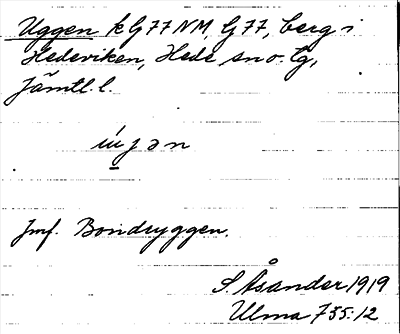 Uggen k G77NM, G77, berg i
Hedeviken, Hede sn o. tg,
Jämtl. l.
úıjən
Jmf. Bondyggen.
S. Åsander 1919
Ulma 735:12